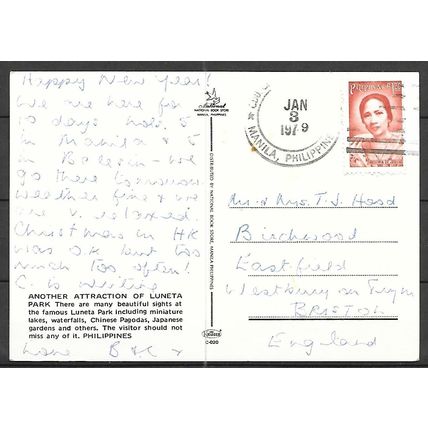 Happy New Year!
We are here for
10 days hols. 5
in Manila & 5
in
go there tomorrow.
Weather fine & we
are v. relaxed.
Christmas in HK
was O.K. but too
much too often!
C is writing
ANOTHER ATTRACTION OF LUNETA
PARK There are many beautiful sights at
the famous Luneta Park including miniature
lakes, waterfalls, Chinese Pagodas, Japanese
gardens and others. The visitor should not
miss any of it. PHILIPPINES
Love B & C x
National
NATIONAL BOOK STORE
MANILA, PHILIPPINES
DISTRIBUTED BY NATIONAL BOOK STORE, MANILA, PHILIPPINES
C-020
JAN
3
1979
MANILA, PHILIPPINE
PILIPINAS
Mr. & Mrs. T. J. Hood
Birchwood
Eastfield
Westbury on Trym
BRISTOL
England